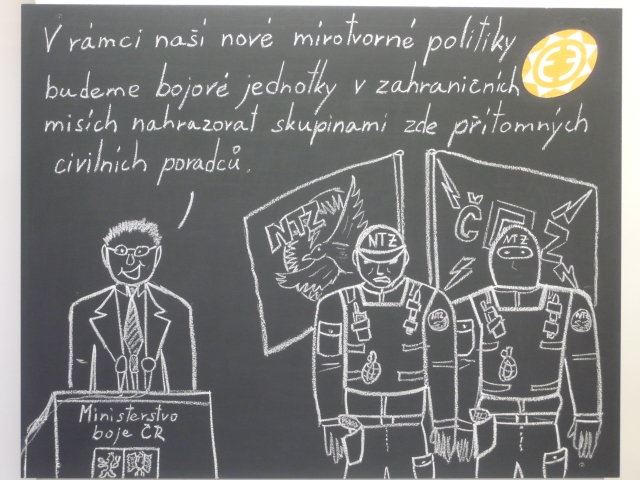 V rámci naší nové mírotvorné politiky
budeme bojové jednotky v zahraničních
misích nahrazovat skupinami zde přítomných
civilních poradců.
NTZ
NTZ
NTZ
NTZ
NTZ
Ministerstvo
boje ČR